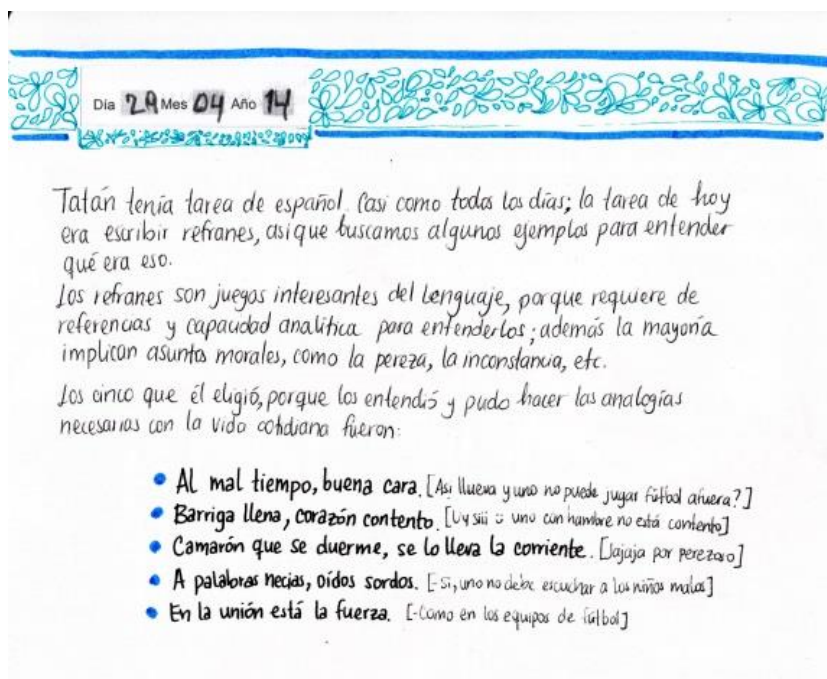 Día 29 Mes 04 Año 14
Tatán tenía tarea de español. Casi como todos los días; la tarea de hoy
era escribir refranes, así que buscamos algunos ejemplos para entender
qué era eso.
Los refranes son juegos interesantes del lenguaje, porque requiere de
referencias y capacidad analítica para entenderlos; además la mayoría
implican asuntos morales, como la pereza, la inconstancia, etc.
Los cinco que él eligió, porque los entendió y pudo hacer las analogías
necesarias con la vida cotidiana fueron:
• Al mal tiempo, buena cara. [Así llueva y uno no puede jugar fútbol afuera?]
• Barriga llena, corazón contento. [Uy siii uno con hambre no está contento]
• Camarón que se duerme, se lo lleva la corriente. [Jajaja por perezoso]
• A palabras necias, oídos sordos. [-Si, uno no debe escuchar a los niños malos]
• En la unión está la fuerza. [-Como en los equipos de fútbol]